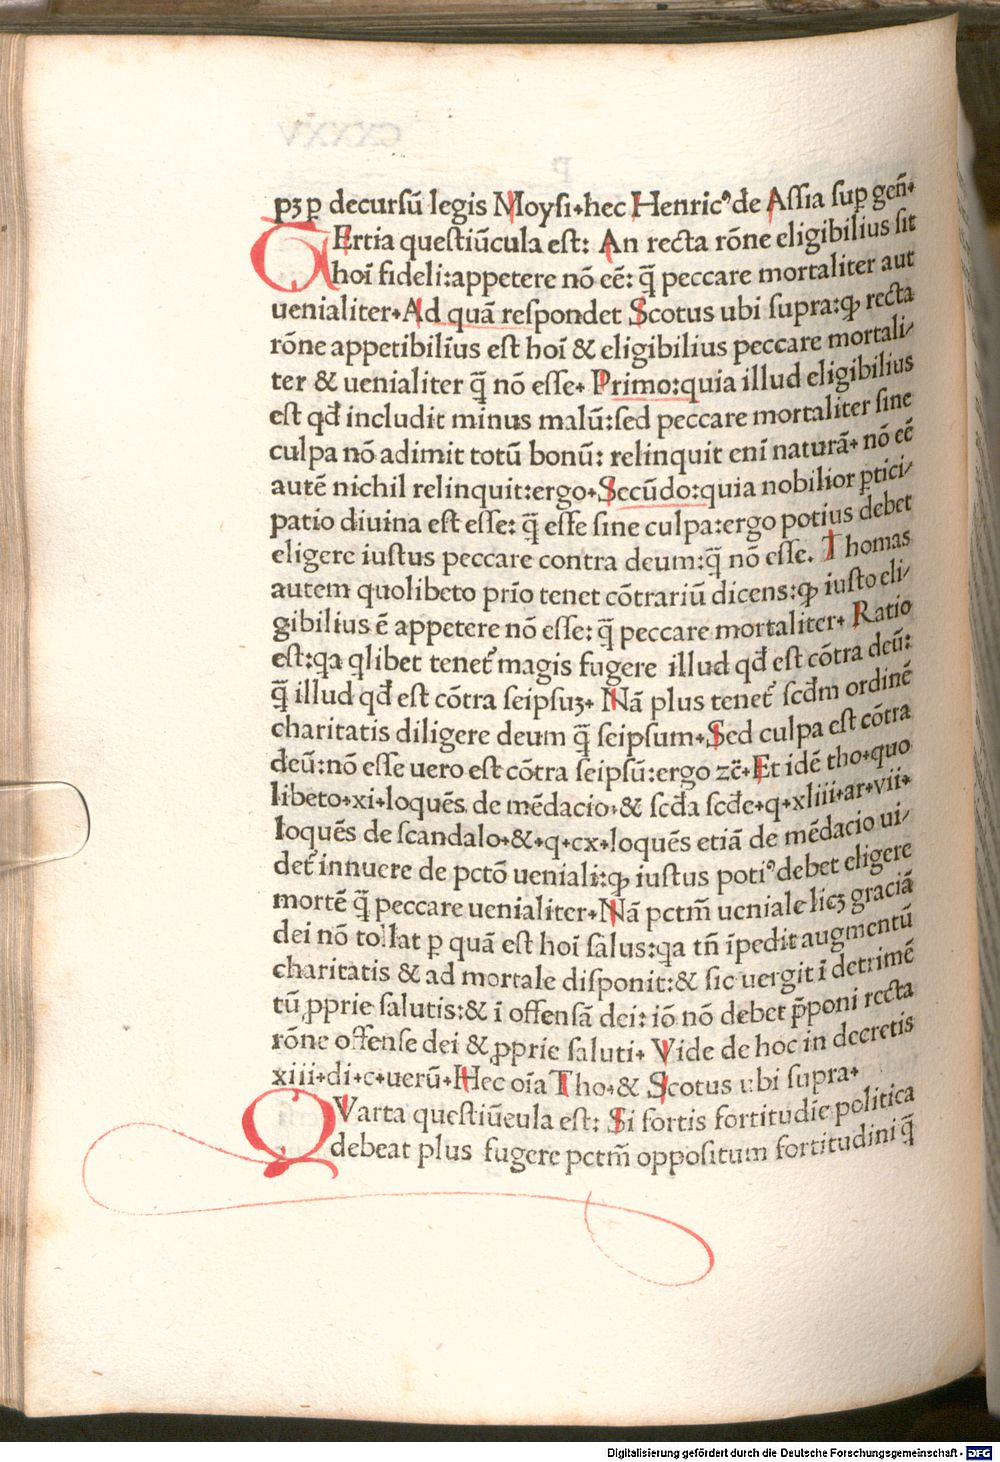 pꝫ ꝑ decursū legis Moysi.hec Henricꝰ de Assia suꝑ geñ.
TErtia questiūcula est: An recta rōne eligibilius sit
hoī fideli:appetere nō eē: q̄ peccare mortaliter aut
uenialiter.Ad quā respondet Scotus ubi supra:ꝙ recta
rōne appetibilius est hoī & eligibilius peccare mortali/
ter & uenialiter q̄ nō esse. Primo:quia illud eligibilius
est qđ includit minus malū:sed peccare mortaliter sine
culpa nō adimit totū bonū: relinquit enī naturā. nō eē
autē nichil relinquit:ergo.Secūdo:quia nobilior ꝑtici/
patio diuina est esse: q̄ esse sine culpa:ergo potius debet
eligere iustus peccare contra deum:q̄ nō esse. Thomas
autem quolibeto prīo tenet cōtrariū dicens:ꝙ iusto eli/
gibilius ē appetere nō esse: q̄ peccare mortaliter. Ratio
est:qa qlibet tenet᷑ magis fugere illud qđ est cōtra deū:
q̄ illud qđ est cōtra seipsuꝫ. Nā plus tenet᷑ scđm ordinē
charitatis diligere deum q̄ seipsum.Sed culpa est cōtra
deū:nō esse uero est cōtra seipsū:ergo zc̄.Et idē tho.quo
libeto.xi.loquēs de mēdacio.& scđa scđe.q.xliii.ar.vii.
loquēs de scandalo.&.q.cx.loquēs etiā de mēdacio ui/
det᷑ innuere de pctō ueniali:ꝙ iustus potiꝰ debet eligere
mortē q̄ peccare uenialiter.Nā pctm̄ ueniale licꝫ graciā
dei nō tollat ꝑ quā est hoī salus:qa tñ īpedit augmentū
charitatis & ad mortale disponit:& sic uergit ī detrimē
tū ꝓprie salutis:& ī offensā dei: iō nō debet p̄poni recta
rōne offense dei & ꝓprie saluti. Vide de hoc in decretis
xiii.di.c.uerū.Hec oīa Tho.& Scotus ubi supra.
QVarta questiūcula est: Si fortis fortitudīe politica
debeat plus fugere pctm̄ oppositum fortitudini q̄
Digitalisierung gefördert durch die Deutsche Forschungsgemeinschaft - DFG